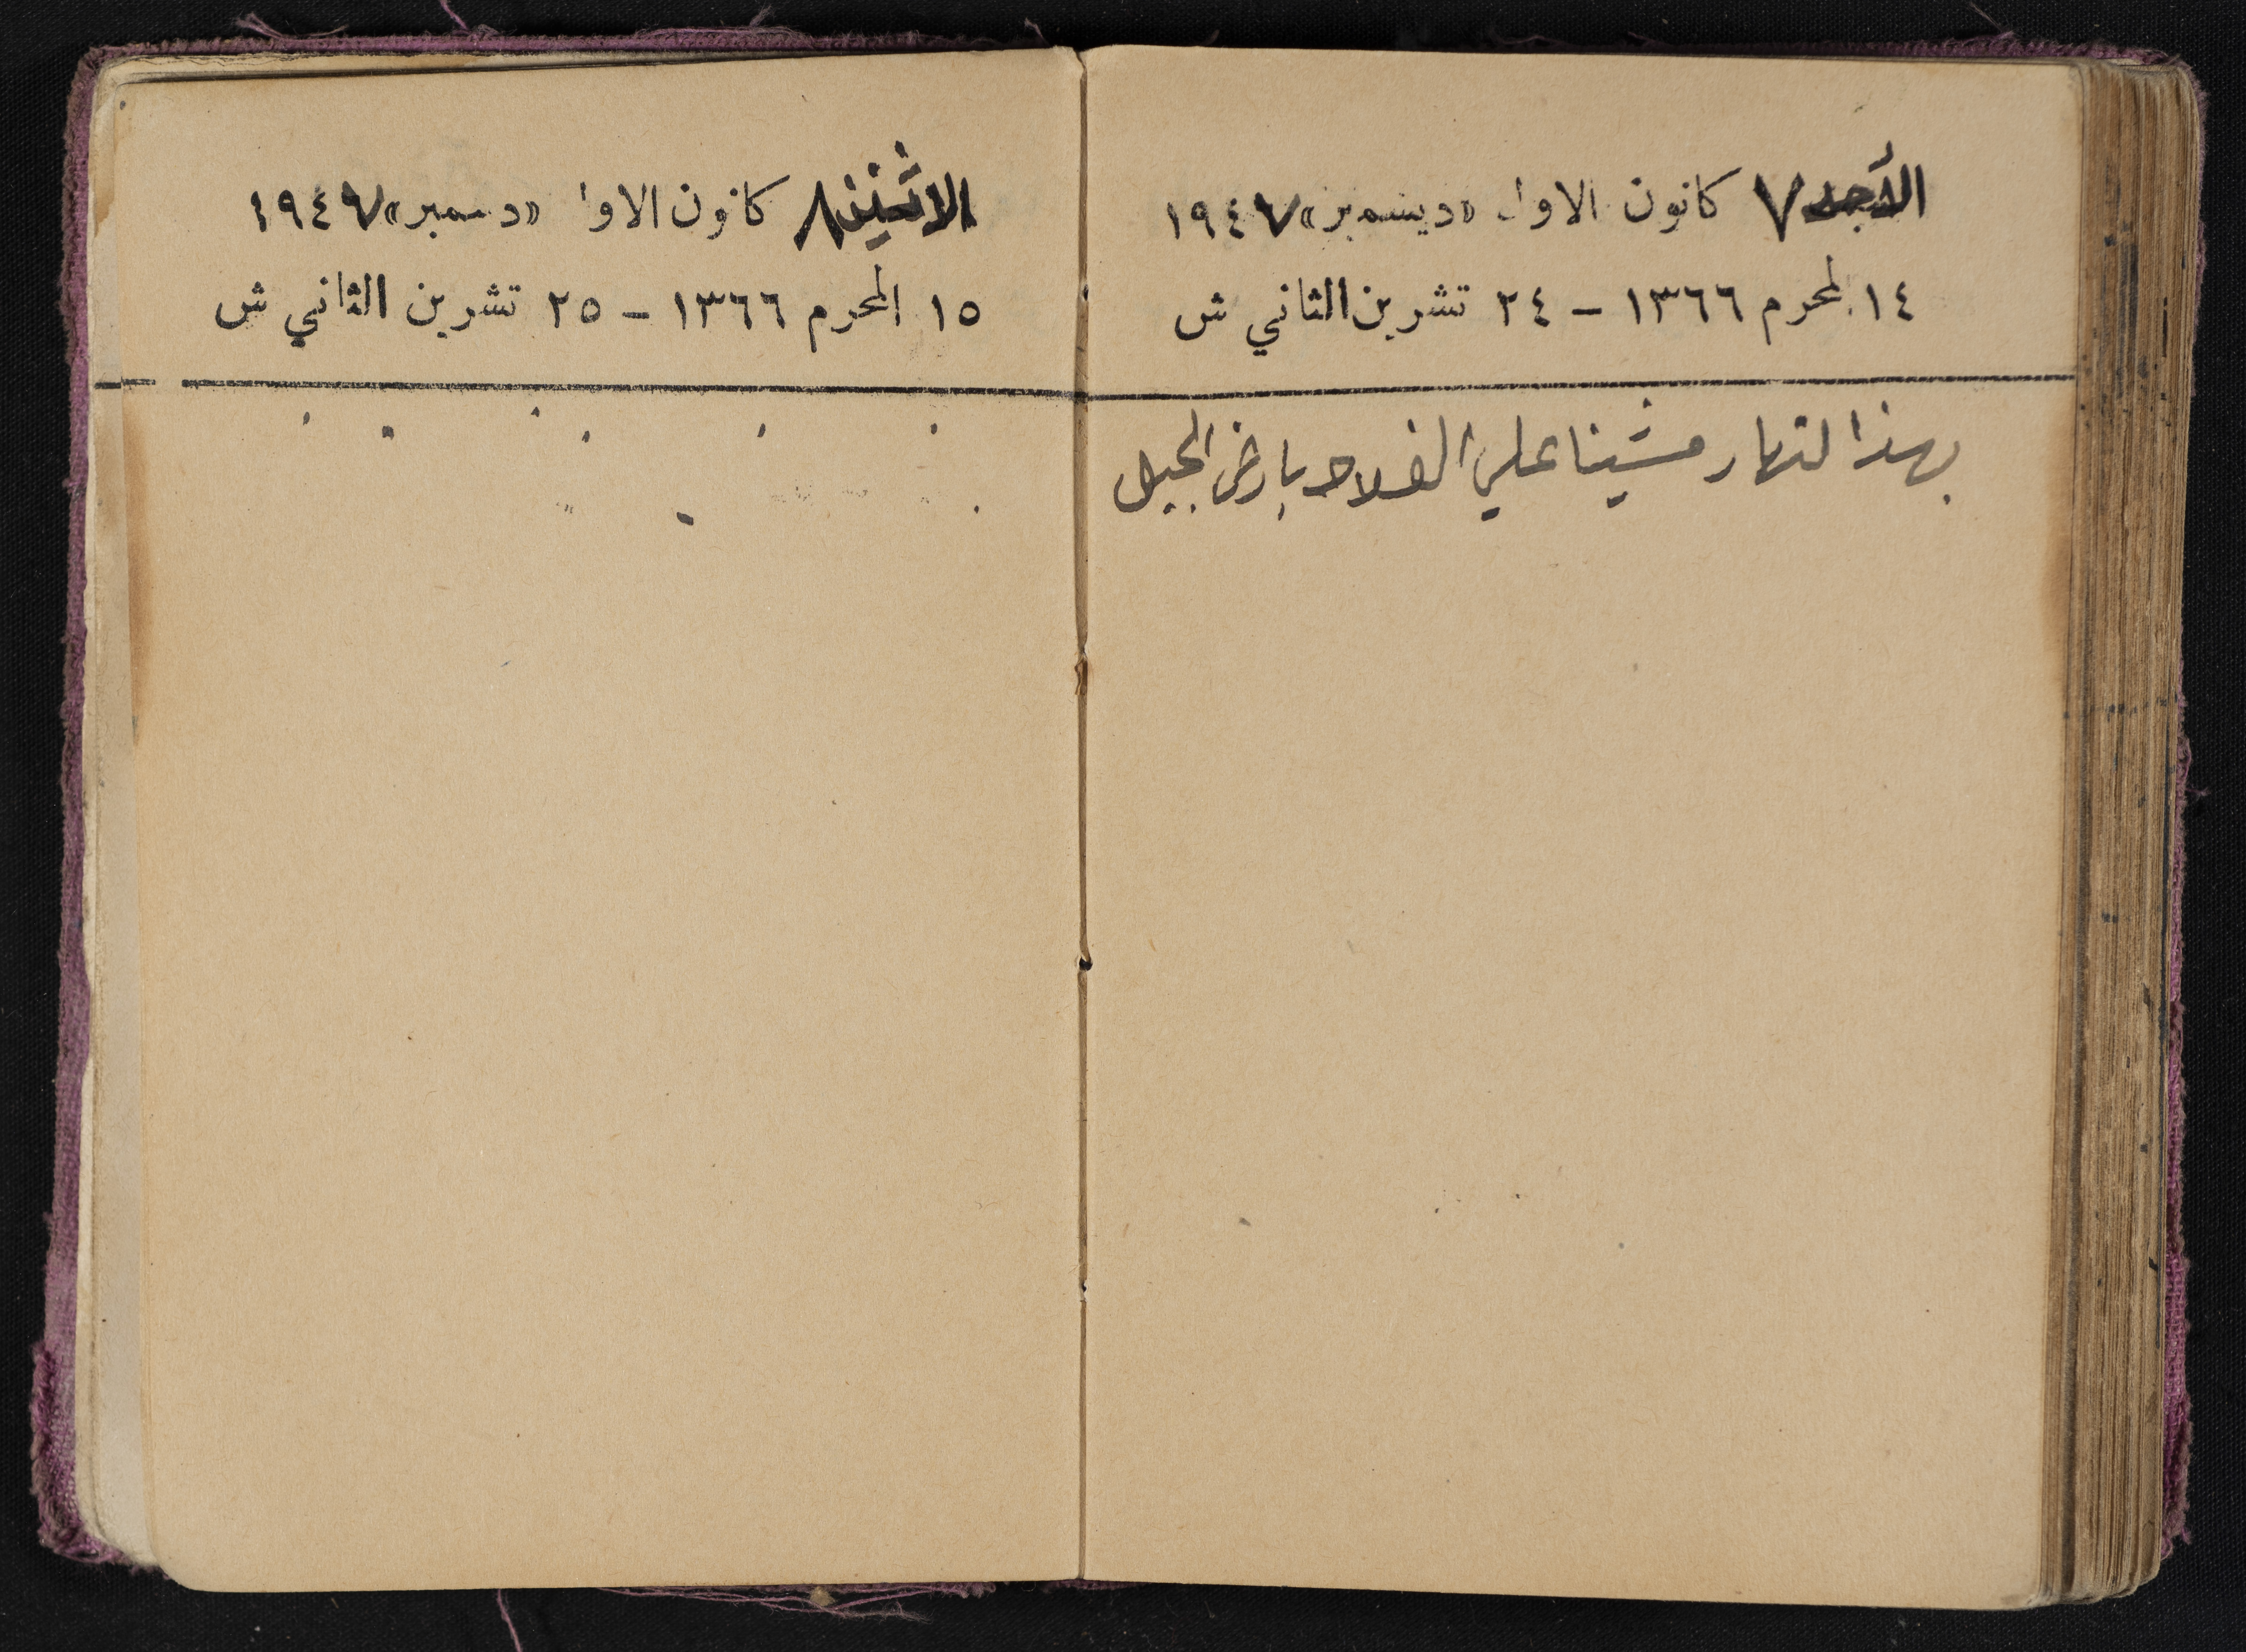 الأحد ٧ كانون الاول «ديسمبر» ١٩٤٧
١٤ المحرم ١٣٦٦ - ٢٤ تشرين الثاني ش
بهذا لنهار مشينا على الفلاحه بارض الجبل
الاثنين ٨ كانون الاول «دسمبر» ١٩٤٧
١٥ المحرم ١٣٦٦ - ٢٥ تشرين الثاني ش